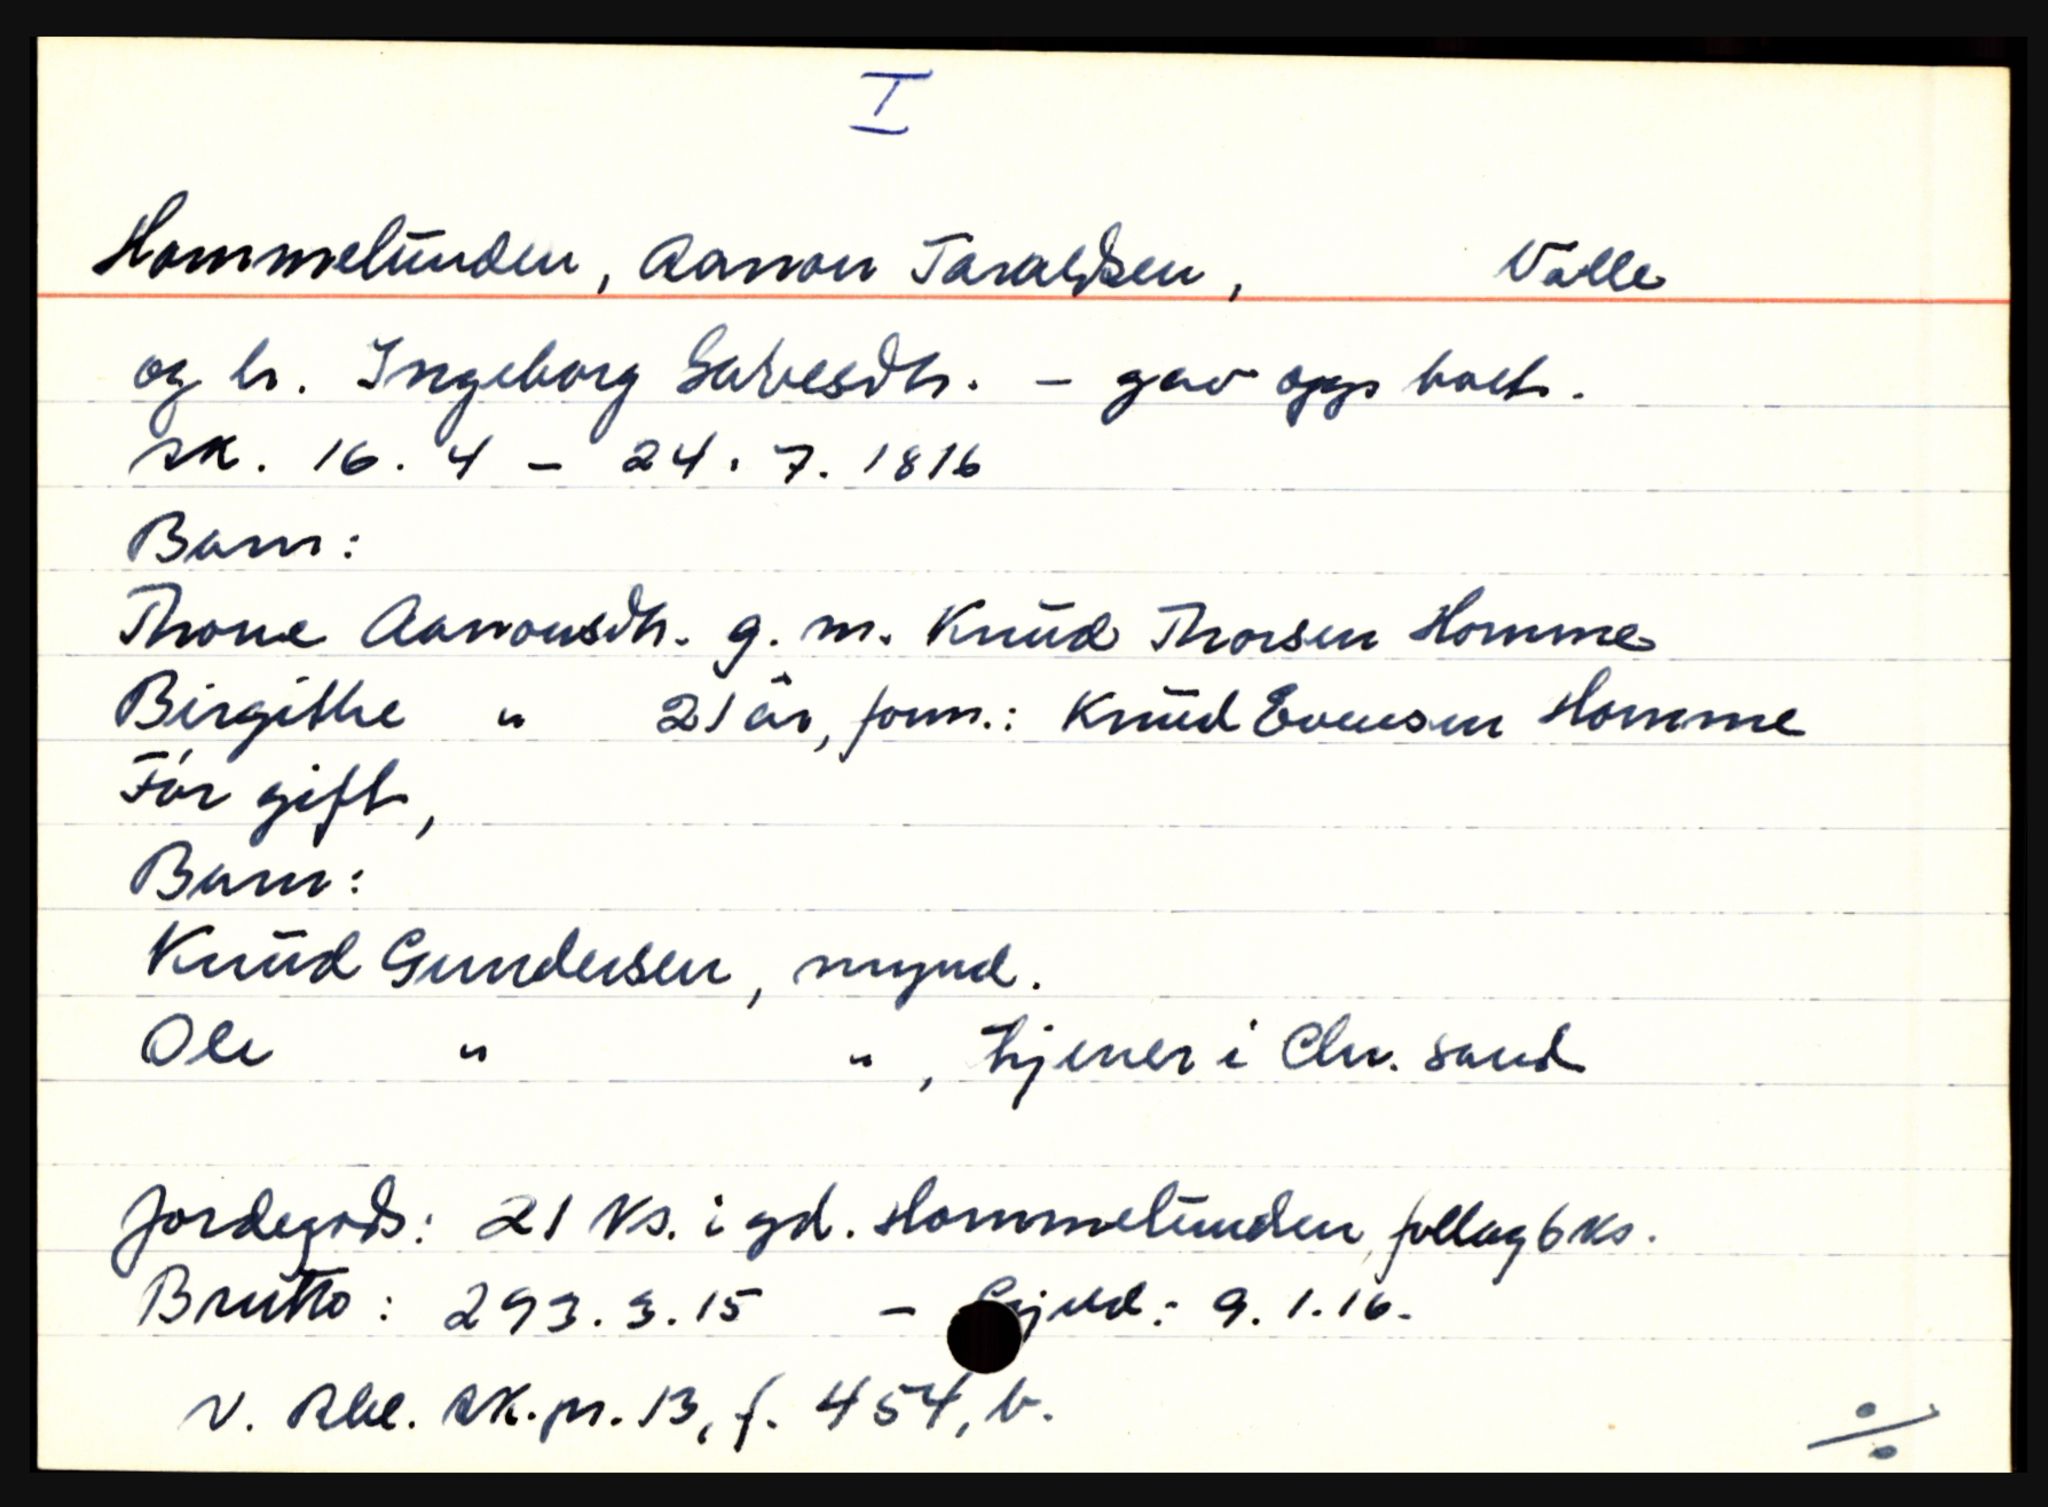 I
Hommelunden, Aanon Taraldsen, Valle
og h. Ingeborg Salvesdtr. - gav opp boet.
sk. 16. 4 - 24. 7. 1816
Barn:
Throne Aanonsdtr. g. m. Knud Thorsen Homme
Birgithe " 21 år, form.: Knud Evensen Homme
Før gift,
Barn:
Knud Gundersen, mynd.
Ole " ", tjener i Chr. sand
Jordegods: 21 ks. i gd. Hommelunden, follag 6 ks.
Brutto: 293. 3. 15 - 9. 1. 16.
V. Rbl. sk. pr. 13, f. 454, b.
%